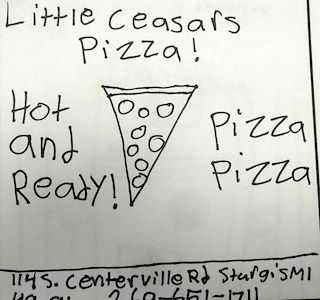 Little Ceasars
Pizza!
Hot
and
Ready!
Pizza
Pizza
1145. Centerville Rd Sturgis MI
269-651-1711